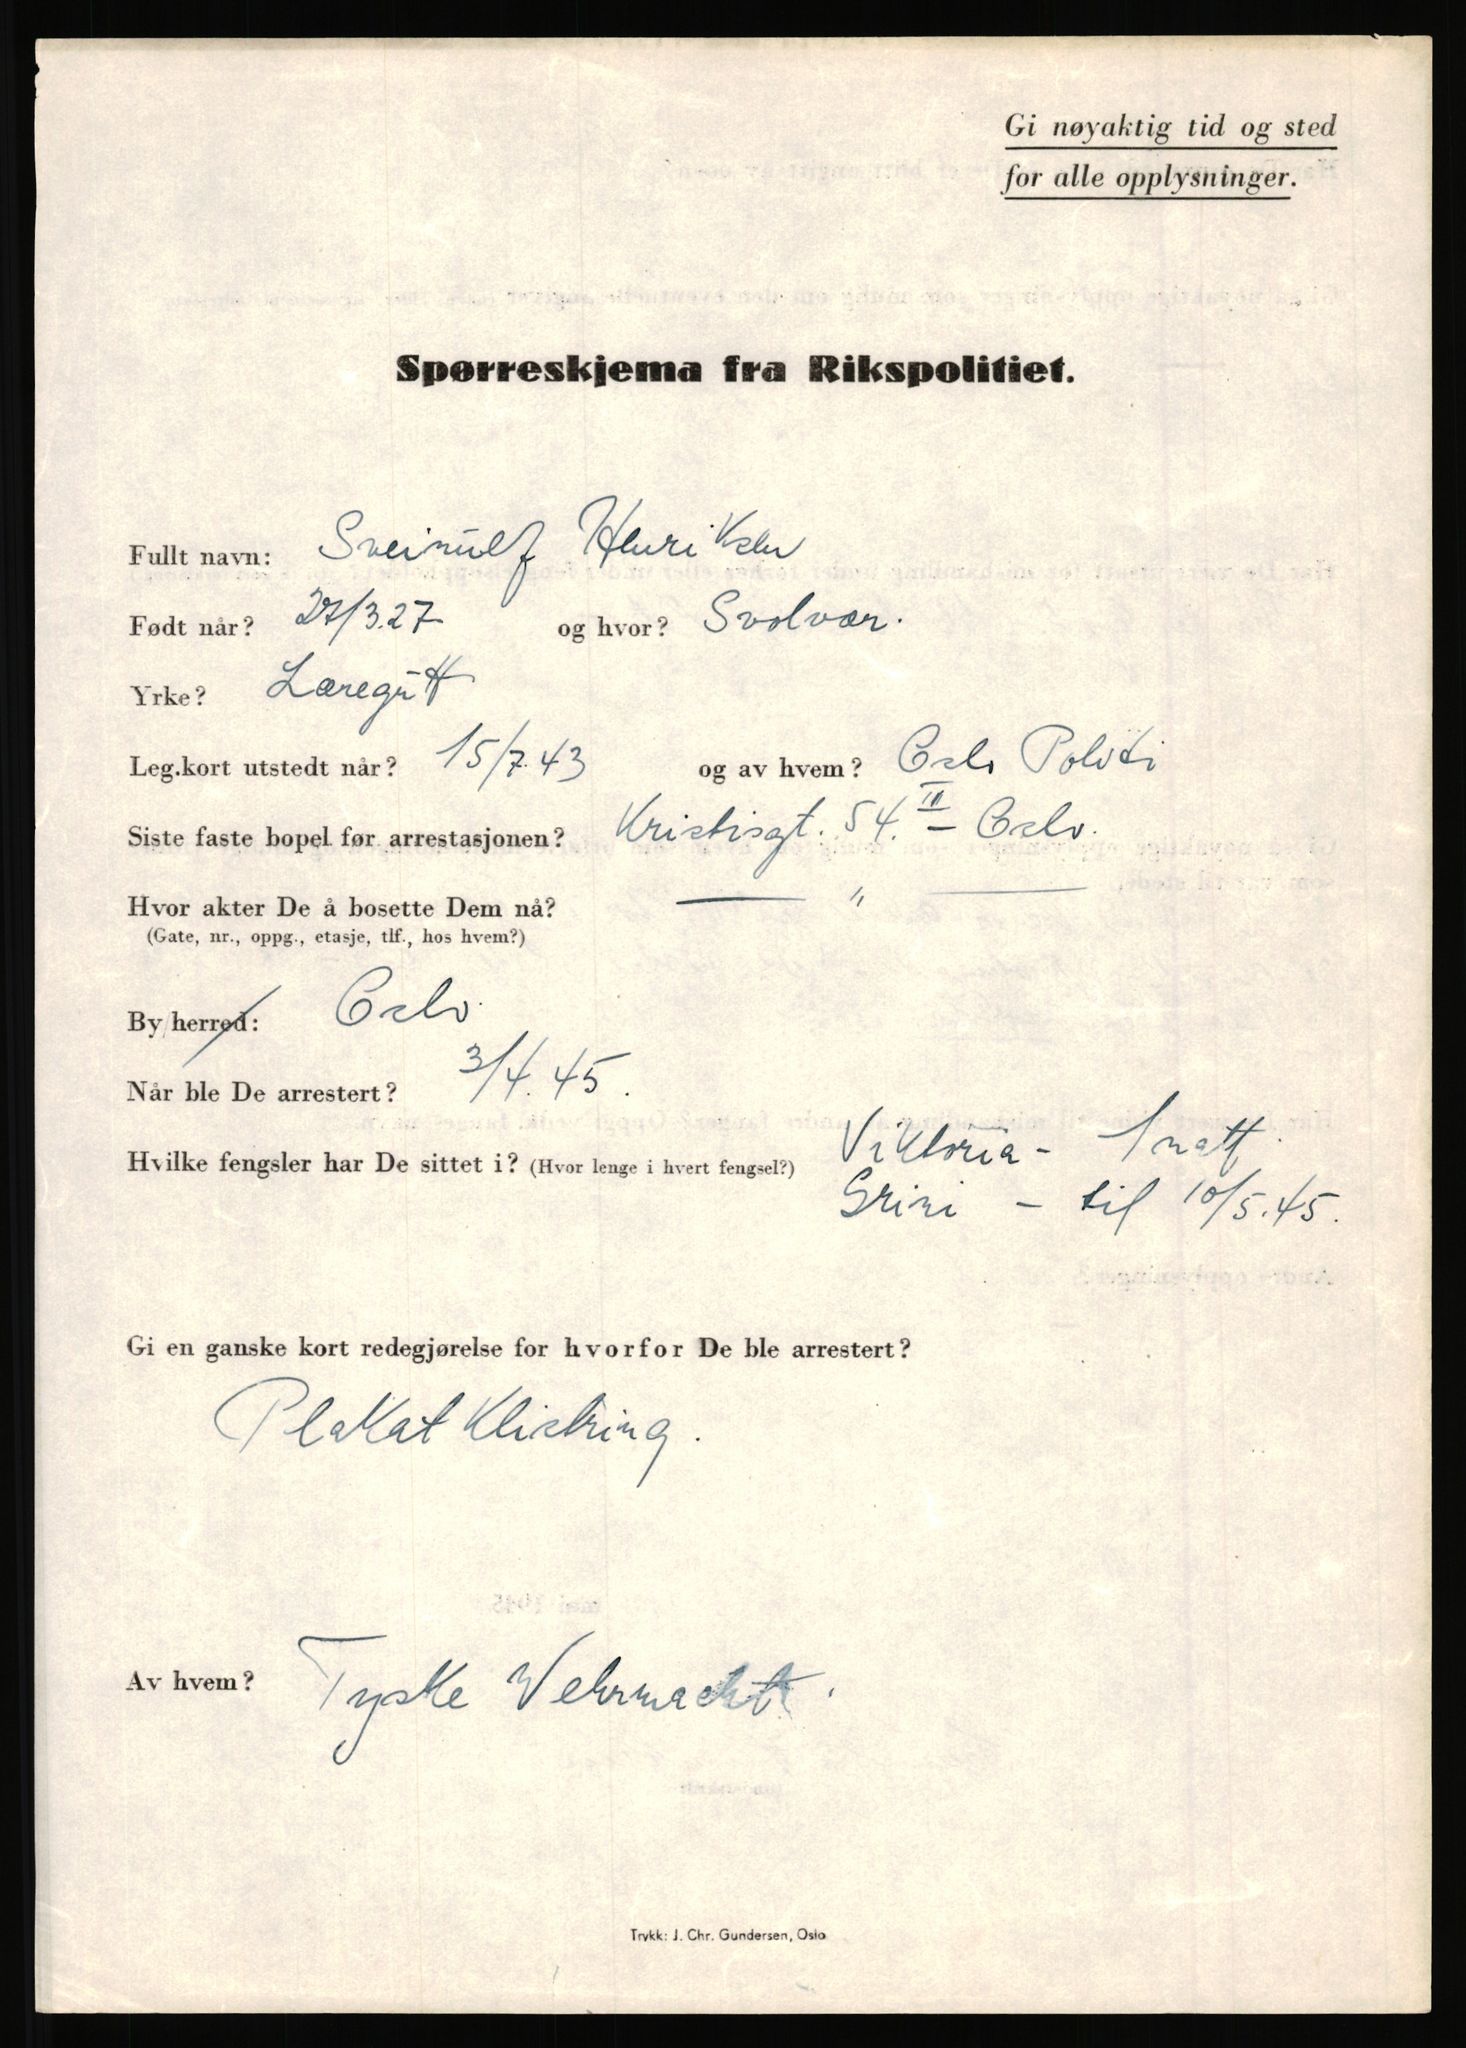 Gi nøyaktig tid og sted
for alle opplysninger.
Spørreskjema fra Rikspolitiet.
Fullt navn: Sveinulf Henriksen
Født når? 27/3.27 og hvor? Svolvær.
Yrke? Læregutt
Leg.kort utstedt når? 15/7.43 og av hvem? Oslo Politi
Siste faste bopel før arrestasjonen? Kristisgt. 54. II – Oslo.
Hvor akter De å bosette Dem nå? — " —
(Gate, nr., oppg., etasje, tlf., hos hvem?)
By/herred: Oslo.
Når ble De arrestert? 3/4.45.
Hvilke fengsler har De sittet i? (Hvor lenge i hvert fengsel?) Viktoria - 1 natt
Grini - til 10/5.45.
Gi en ganske kort redegjørelse for hvorfor De ble arrestert?
Plakat klistring.
Av hvem? Tyske Wehrmacht.
Trykk: J. Chr. Gundersen, Oslo